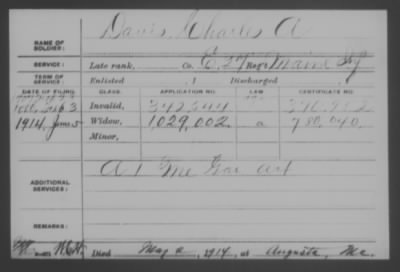 Davis, Charles A
NAME OF SOLDIER:
SERVICE: Late rank, Co. E, 29 Reg't Maine Inf
TERM OF SERVICE: Enlisted , 1 Discharged , 1
DATE OF FILING. CLASS. APPLICATION NO. LAW. CERTIFICATE NO.
Invalid,
1914, June 5 Widow, 1,029,002 a 780,040.
Minor,
ADDITIONAL SERVICES: A 1 Me Gar Art
REMARKS:
Died May 2, 1914, at Augusta, Me.